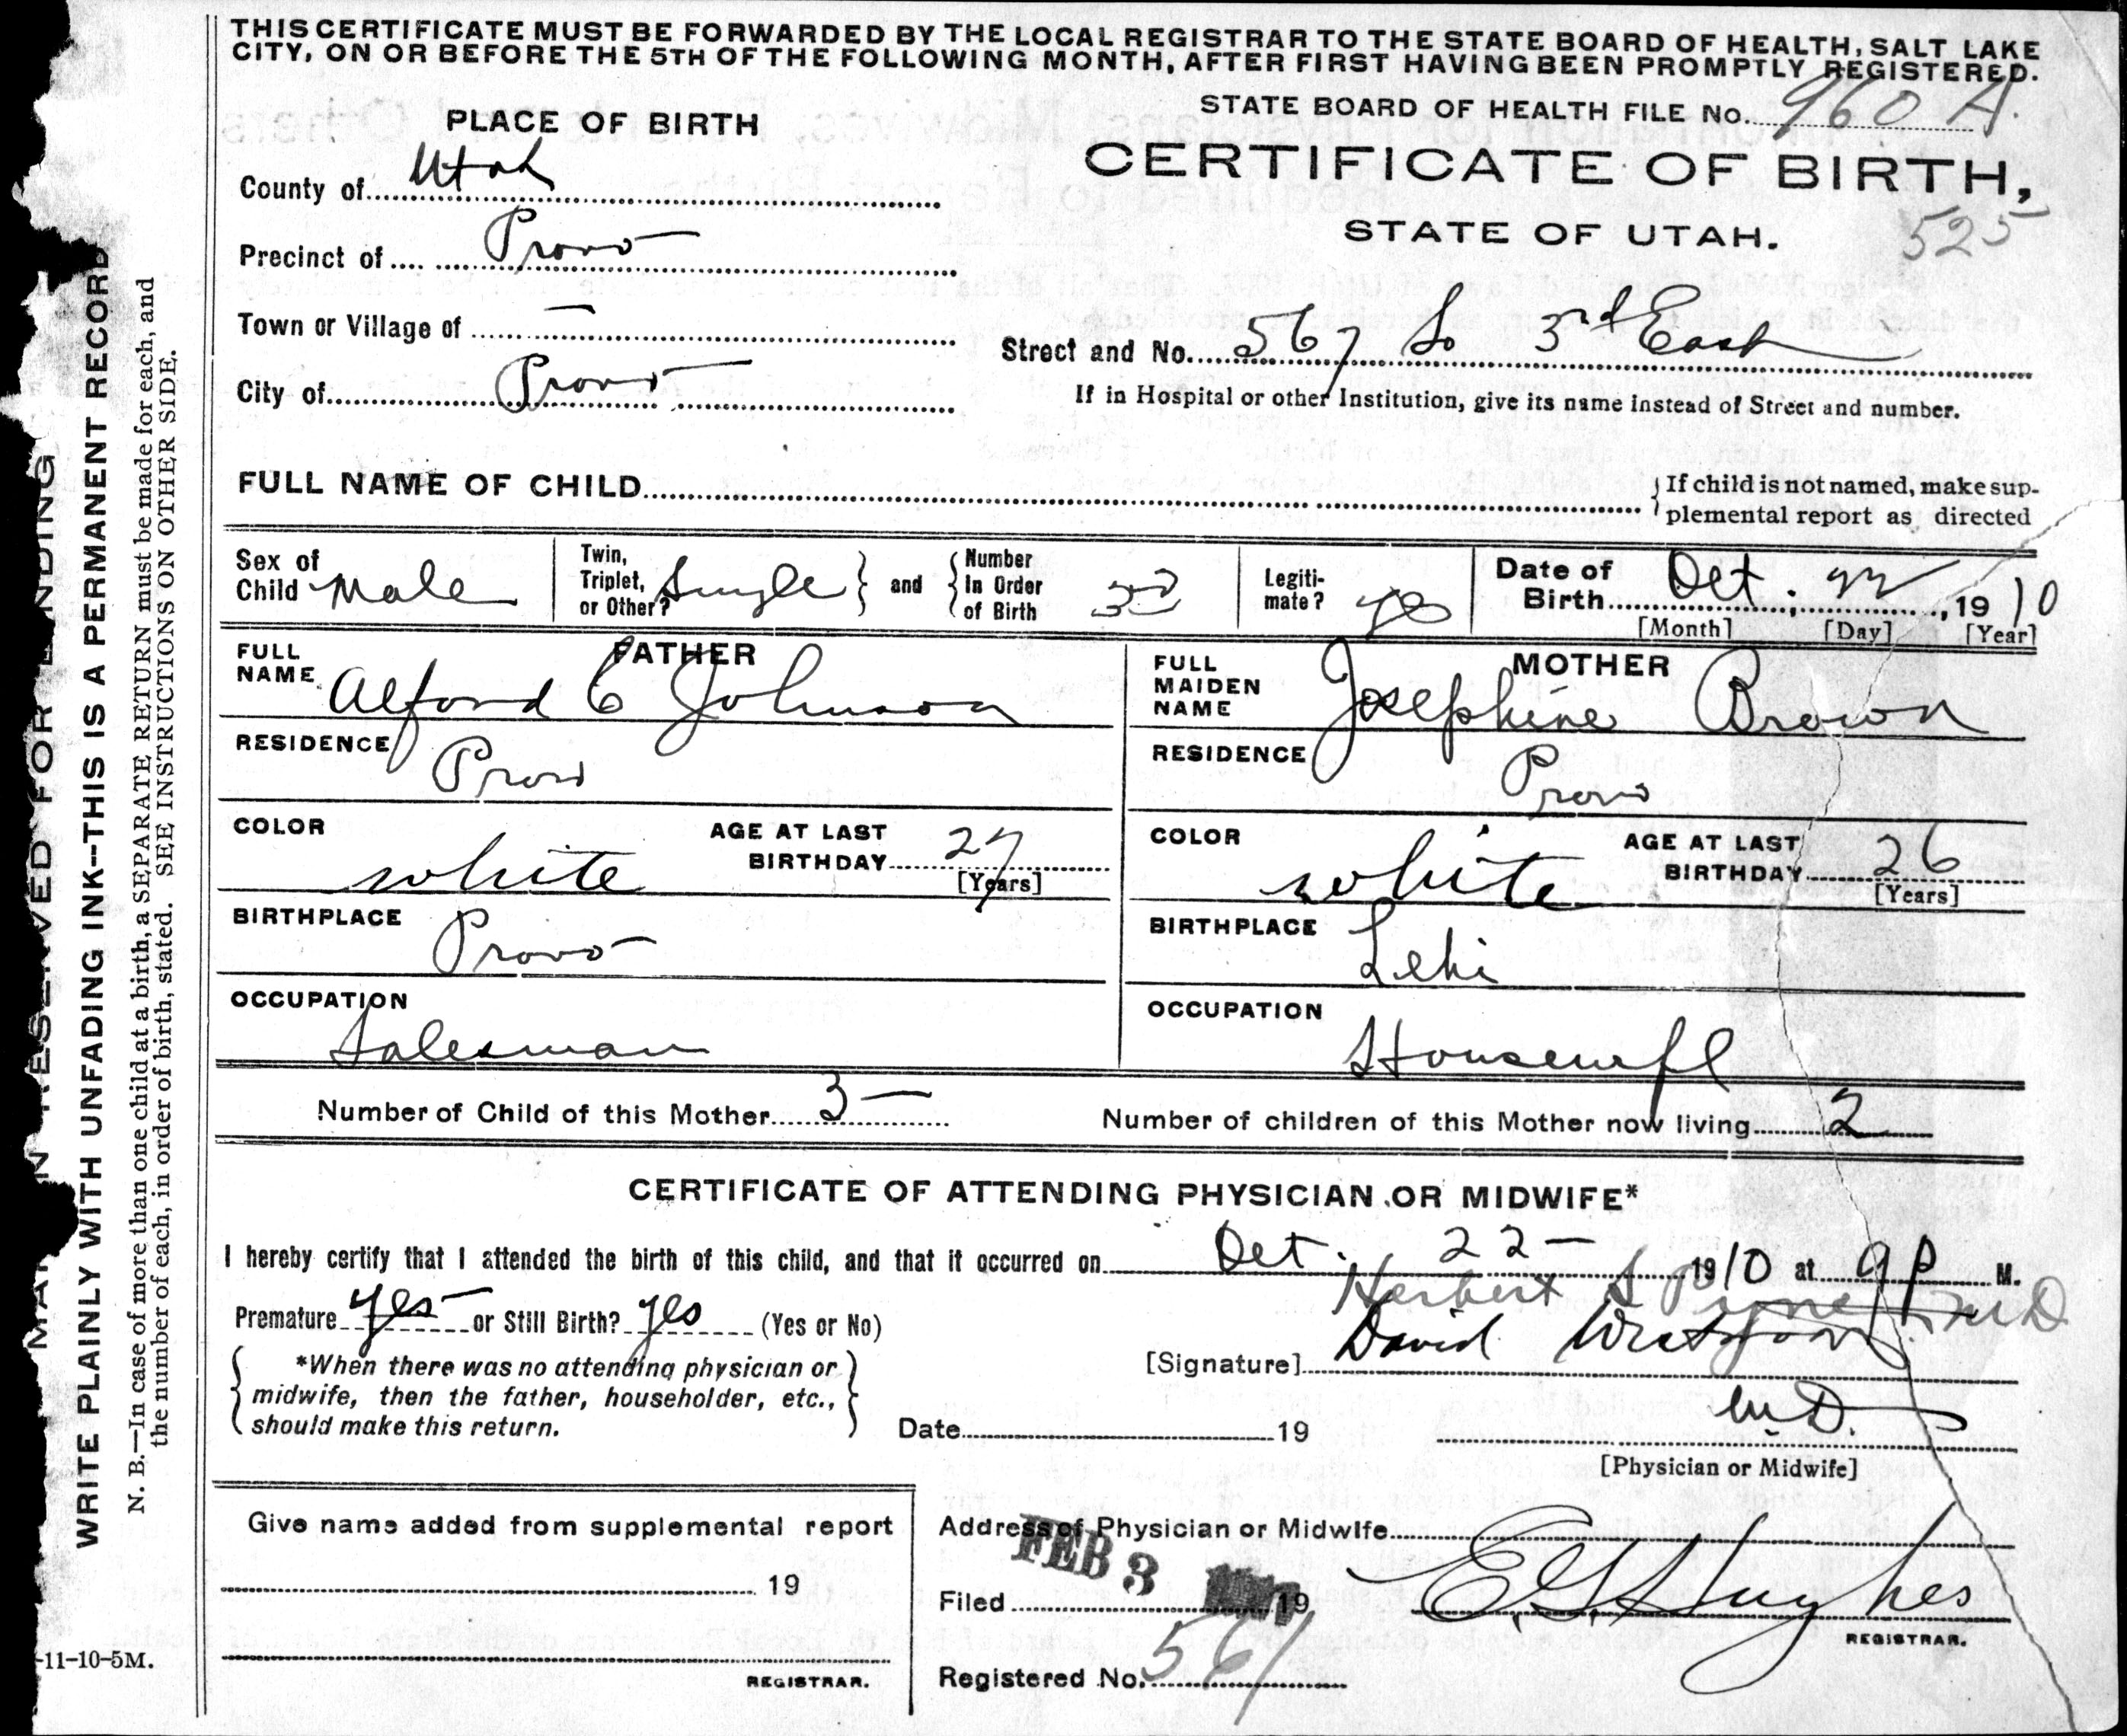 THIS CERTIFICATE MUST BE FORWARDED BY THE LOCAL REGISTRAR TO THE STATE BOARD OF HEALTH, SALT LAKE
CITY, ON OR BEFORE THE 5TH OF THE FOLLOWING MONTH, AFTER FIRST HAVING BEEN PROMPTLY REGISTERED.
STATE BOARD OF HEALTH FILE No. 960 A.
PLACE OF BIRTH
CERTIFICATE OF BIRTH,
STATE OF UTAH.
525
County of Utah
Precinct of Provo
Town or Village of —
City of Provo
Street and No. 567 So 3rd East
If in Hospital or other Institution, give its name instead of Street and number.
FULL NAME OF CHILD
If child is not named, make sup-
plemental report as directed
Sex of Child Male
Twin, Triplet, or Other? Single and Number In Order of Birth
Legiti-mate? yes
Date of Birth Oct. 22, 1910
[Month] [Day] [Year]
FATHER
FULL NAME Alford C Johnson
RESIDENCE Provo
COLOR white
AGE AT LAST BIRTHDAY 27 [Years]
BIRTHPLACE Provo
OCCUPATION Salesman
MOTHER
FULL MAIDEN NAME Josephine Brown
RESIDENCE Provo
COLOR white
AGE AT LAST BIRTHDAY 26 [Years]
BIRTHPLACE Lehi
OCCUPATION Housewife
Number of Child of this Mother 3 —
Number of children of this Mother now living 2
CERTIFICATE OF ATTENDING PHYSICIAN OR MIDWIFE*
I hereby certify that I attended the birth of this child, and that it occurred on Oct. 22 — 1910 at 9 P M.
Premature yes or Still Birth? yes (Yes or No)
Herbert S Pyne MD
[Signature] David Westwood
M.D.
*When there was no attending physician or
midwife, then the father, householder, etc.,
should make this return.
Date 19
[Physician or Midwife]
Give name added from supplemental report
19
REGISTRAR.
Address of Physician or Midwife
FEB 3
Filed 19
E G Hughes
REGISTRAR.
Registered No. 561
-11-10-5M.
WRITE PLAINLY WITH UNFADING INK--THIS IS A PERMANENT RECORD
N. B.—In case of more than one child at a birth, a SEPARATE RETURN must be made for each, and
the number of each, in order of birth, stated. SEE INSTRUCTIONS ON OTHER SIDE.